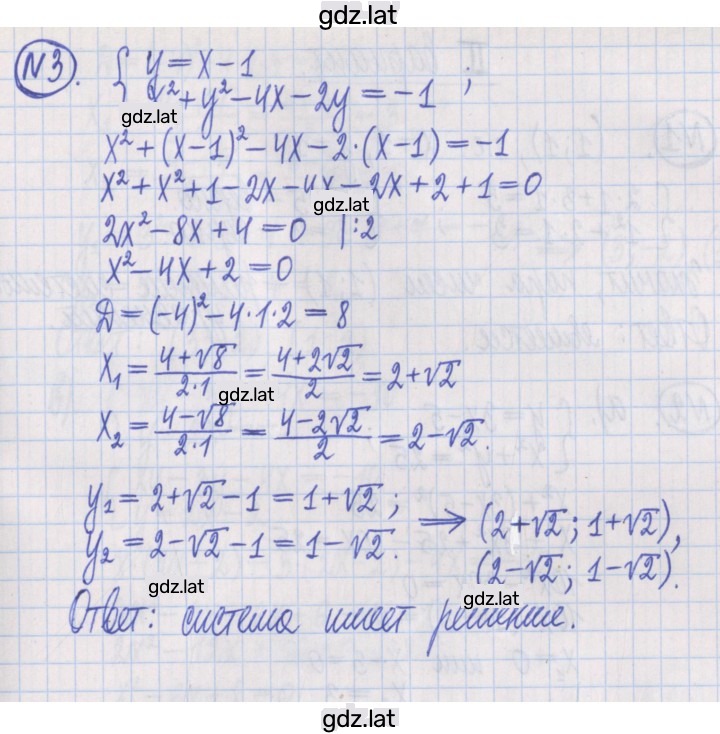 gdz.lat
№3. { y = x – 1
x² + y² – 4x – 2y = –1 ;
gdz.lat
x² + (x – 1)² – 4x – 2·(x – 1) = –1
x² + x² + 1 – 2x – 4x – 2x + 2 + 1 = 0
gdz.lat
2x² – 8x + 4 = 0 |:2
x² – 4x + 2 = 0
Д = (–4)² – 4·1·2 = 8
x₁ = (4 + √8)/(2·1) = (4 + 2√2)/2 = 2 + √2
gdz.lat
x₂ = (4 – √8)/(2·1) = (4 – 2√2)/2 = 2 – √2.
y₁ = 2 + √2 – 1 = 1 + √2 ;
y₂ = 2 – √2 – 1 = 1 – √2.
⟹ (2 + √2 ; 1 + √2),
(2 – √2 ; 1 – √2).
gdz.lat
gdz.lat
Ответ: система имеет решение.
gdz.lat